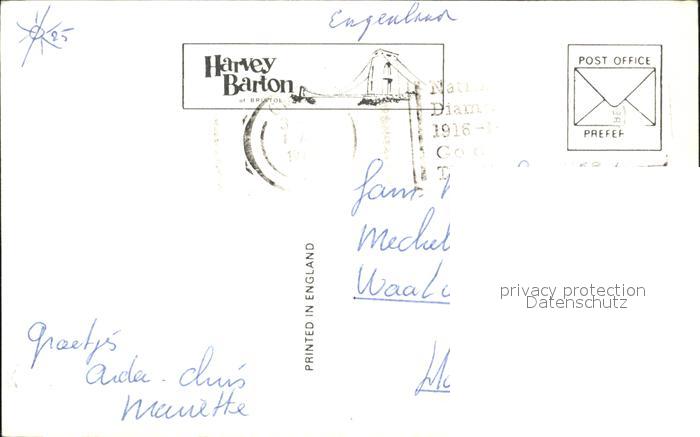 25
Engenland
Harvey
Barton
of BRISTOL
POST OFFICE
PREFER
Nati
Diam
1916-1
Go
T
Fam.
Mechel
Waal
PRINTED IN ENGLAND
privacy protection
Datenschutz
groetjes
Aida - Chris
Mariette